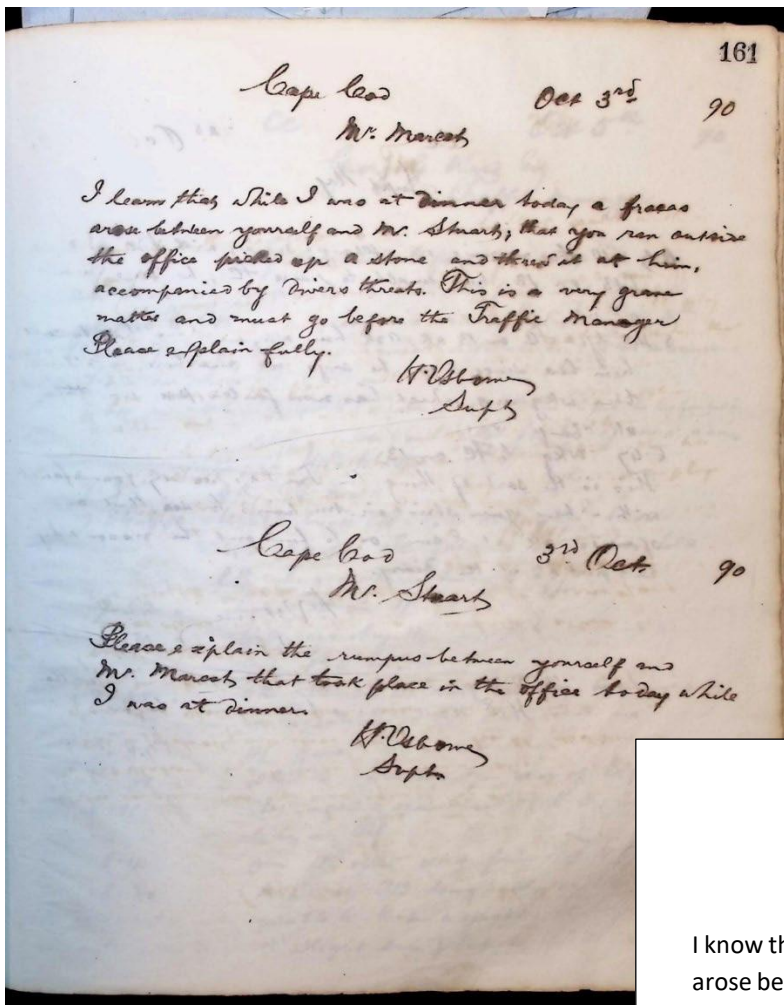 161
Cape Cod Oct 3rd 90
Mr. Marcet
I learn that while I was at dinner today a fracas
arose between yourself and Mr. Stuart, that you ran outside
the office picked up a stone and threw it at him,
accompanied by divers threats. This is a very grave
matter and must go before the Traffic Manager
Please explain fully.
H. Osborne
Supt
Cape Cod 3rd Oct. 90
Mr. Stuart
Please explain the rumpus between yourself and
Mr. Marcet, that took place in the office today while
I was at dinner.
H. Osborne
Supt.
I know th
arose be